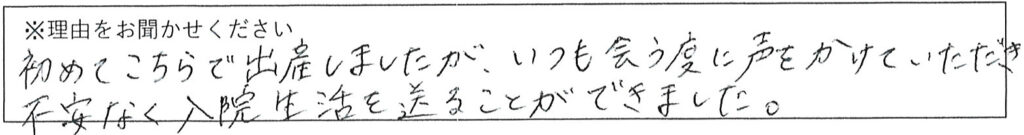 ※理由をお聞かせください
初めてこちらで出産しましたが、いつも会う度に声をかけていただき
不安なく入院生活を送ることができました。